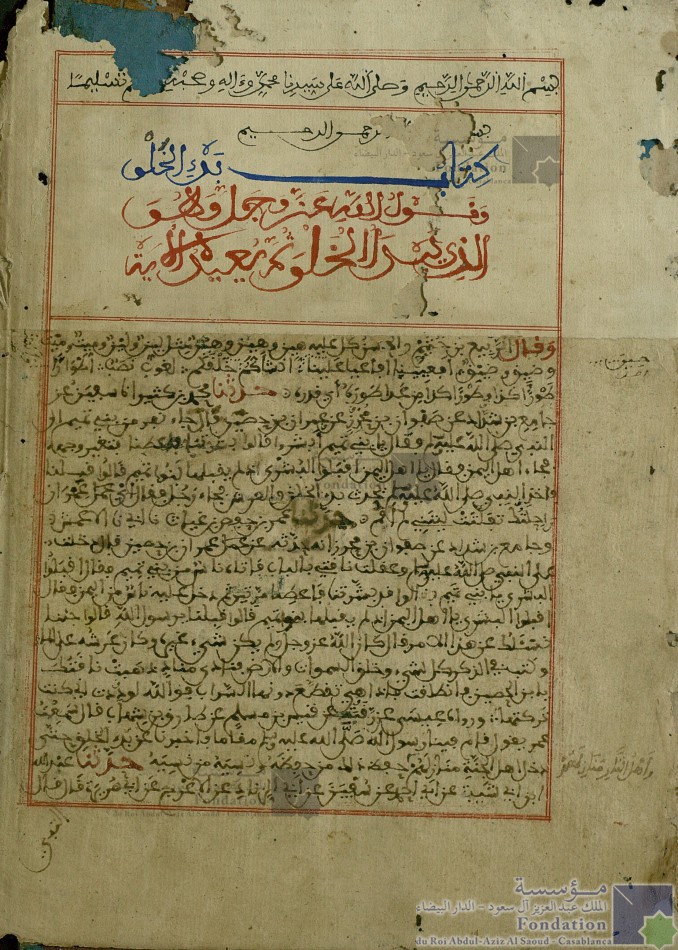 بسم الله الرحمن الرحيم وصلى الله على سيدنا محمد وءاله وصحبه وسلم تسليما
بسم الرحمن الرحيم
كتاب بدء الخلق
وقول الله عز وجل وهو
الذي يبدأ الخلق ثم يعيده الآية
وقال الربيع بن خثيم والحسن كل عليه هين وهين وهين مثل لين ولين وميت وميت
وضيق وضيق أفعيينا أفأعيا علينا أنشأكم خلقكم لغوب نصب أطوارا
طورا كذا وطورا كذا عدا طوره أي قدره حدثنا محمد بن كثير انا سفين عن
جامع بن شداد عن صفوان بن محرز عن عمران بن حصين قال جاء نفر من بني تميم إلى
النبي صلى الله عليه وسلم فقال يا بني تميم أبشروا قالوا بشرتنا فأعطنا فتغير وجهه
فجاءه أهل اليمن فقال يا أهل اليمن اقبلوا البشرى إذ لم يقبلها بنو تميم قالوا قبلنا
فأخذ النبي صلى الله عليه وسلم يحدث بدء الخلق والعرش فجاء رجل فقال يا عمران
راحلتك تفلتت ليتني لم أقم حدثنا عمر بن حفص بن غياث نا أبي نا الأعمش نا
جامع بن شداد عن صفوان بن محرز انه حدثه عن عمران بن حصين قال دخلت
على النبي صلى الله عليه وسلم وعقلت ناقتي بالباب فأتاه ناس من بني تميم فقال اقبلوا
البشرى يا بني تميم قالوا قد بشرتنا فأعطنا مرتين ثم دخل عليه ناس من اليمن فقال
اقبلوا البشرى يا أهل اليمن إذ لم يقبلها بنو تميم قالوا قبلنا يا رسول الله قالوا جئنا
نسئلك عن هذا الأمر قال كان الله عز وجل ولم يكن شيء غيره وكان عرشه على الماء
وكتب في الذكر كل شيء وخلق السموات والأرض فنادى مناد ذهبت ناقتك
يا ابن الحصين فانطلقت فإذا هي تقطع دونها السراب فوالله لوددت أني كنت
تركتها ورواه عيسى عن رقبة عن قيس بن مسلم عن طارق بن شهاب قال سمعت
عمر يقول قام فينا رسول الله صلى الله عليه وسلم مقاما فأخبرنا عن بدء الخلق حتى
دخل أهل الجنة منازلهم حفظ ذلك من حفظه ونسيه من نسيه حدثنا عبد الله
ابن أبي شيبة عن أبي أحمد عن سفين عن أبي الزناد عن الأعرج عن أبي هريرة قال قال
وأهل النار منازلهم
مؤسسة
الملك عبد العزيز آل سعود - الدار البيضاء
Fondation
du Roi Abdul-Aziz Al Saoud - Casablanca